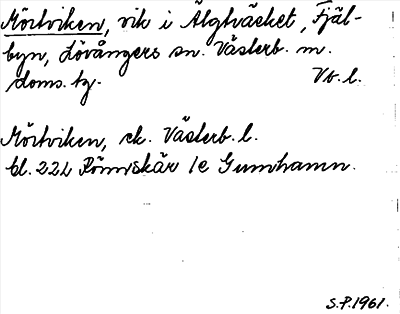 Mörtviken, vik i Älgträsket, Fjäl-
byn, Lövångers sn. Västerb. m.
doms. tg. Vb. l.
Mörtviken, ek. Västerb. l.
bl. 22L Rönnskär 1e Gumhamn.
S.P. 1961.